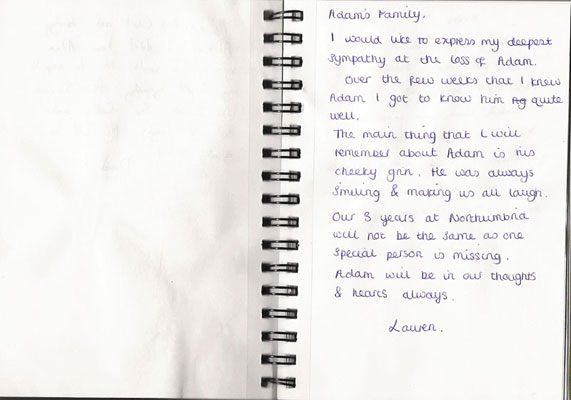 Adam's Family.
I would like to express my deepest
sympathy at the loss of Adam.
Over the few weeks that I knew
Adam I got to know him quite
well.
The main thing that I will
remember about Adam is his
cheeky grin. He was always
smiling & making us all laugh.
Our 3 years at Northumbria
will not be the same as one
special person is missing.
Adam will be in our thoughts
& hearts always.
Lauren.